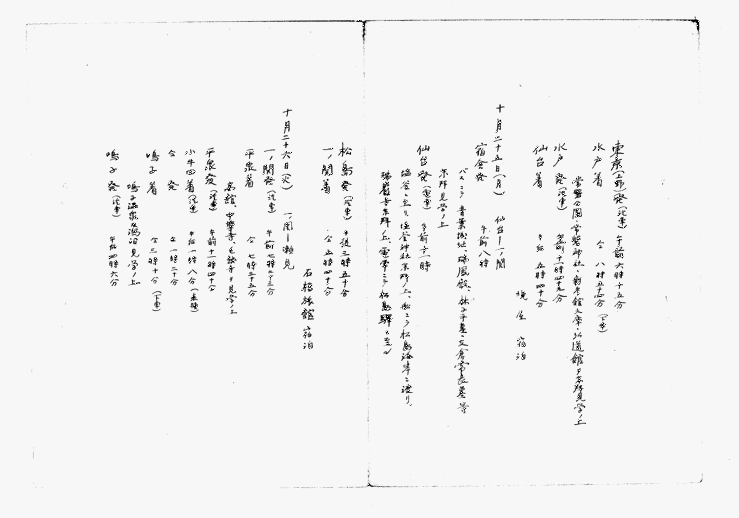 東京(上野)発(汽車) 午前六時十五分
水戸着 仝 八時五十五分(下車)
常磐公園・常磐神社・彰考館文庫・弘道館ヲ参拝見学ノ上
水戸発(汽車) 午前十一時四十九分
仙台着 午后五時四十分
境屋 宿泊
十月二十五日(月) 仙台―一ノ関
宿舎発 午前八時
バスニテ青葉城址、瑞鳳殿、林子平墓・支倉常長墓等
参拝見学ノ上
仙台発(電車) 午前十一時
塩釜ニ至リ塩釜神社参拝ノ上、船ニテ松島海岸ニ渡リ、
瑞巌寺参拝ノ上、電車ニテ松島駅ニ至ル
松島発(汽車) 午後三時五十分
一ノ関着 仝 五時四十分
石橋旅館 宿泊
十月二十六日(火) 一ノ関―瀬見
一ノ関発(汽車) 午前七時二十三分
平泉着 仝 七時三十五分
高館、中尊寺、毛越寺ヲ見学ノ上
平泉発(汽車) 午前十一時四十分
小牛田着(汽車) 午后一時八分(乗換)
仝 発 午一時二十分
鳴子着 仝三時十分(下車)
鳴子温泉及潟沼見学ノ上
鳴子発(汽車) 午后四時六分